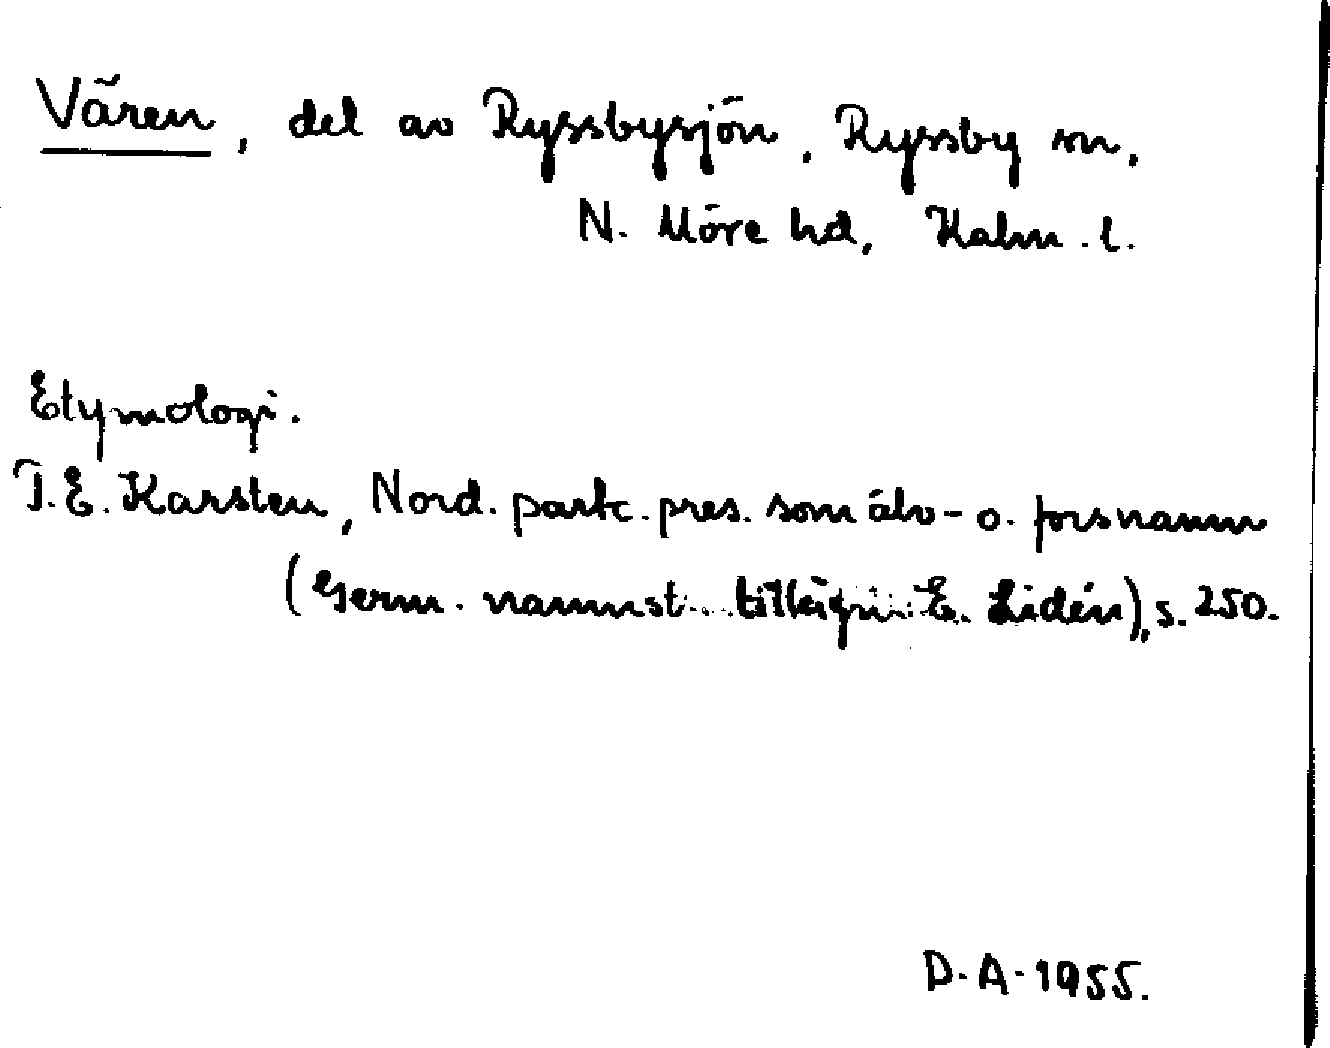 Vären, del av Ryssbysjön, Ryssby sn,
N. Möre hd, Kalm. l.
Etymologi.
T.E. Karsten, Nord. partc. pres. som älv- o. forsnamn
(Germ. namnst. tillägn. E. Lidén), s. 250.
D.A. 1955.